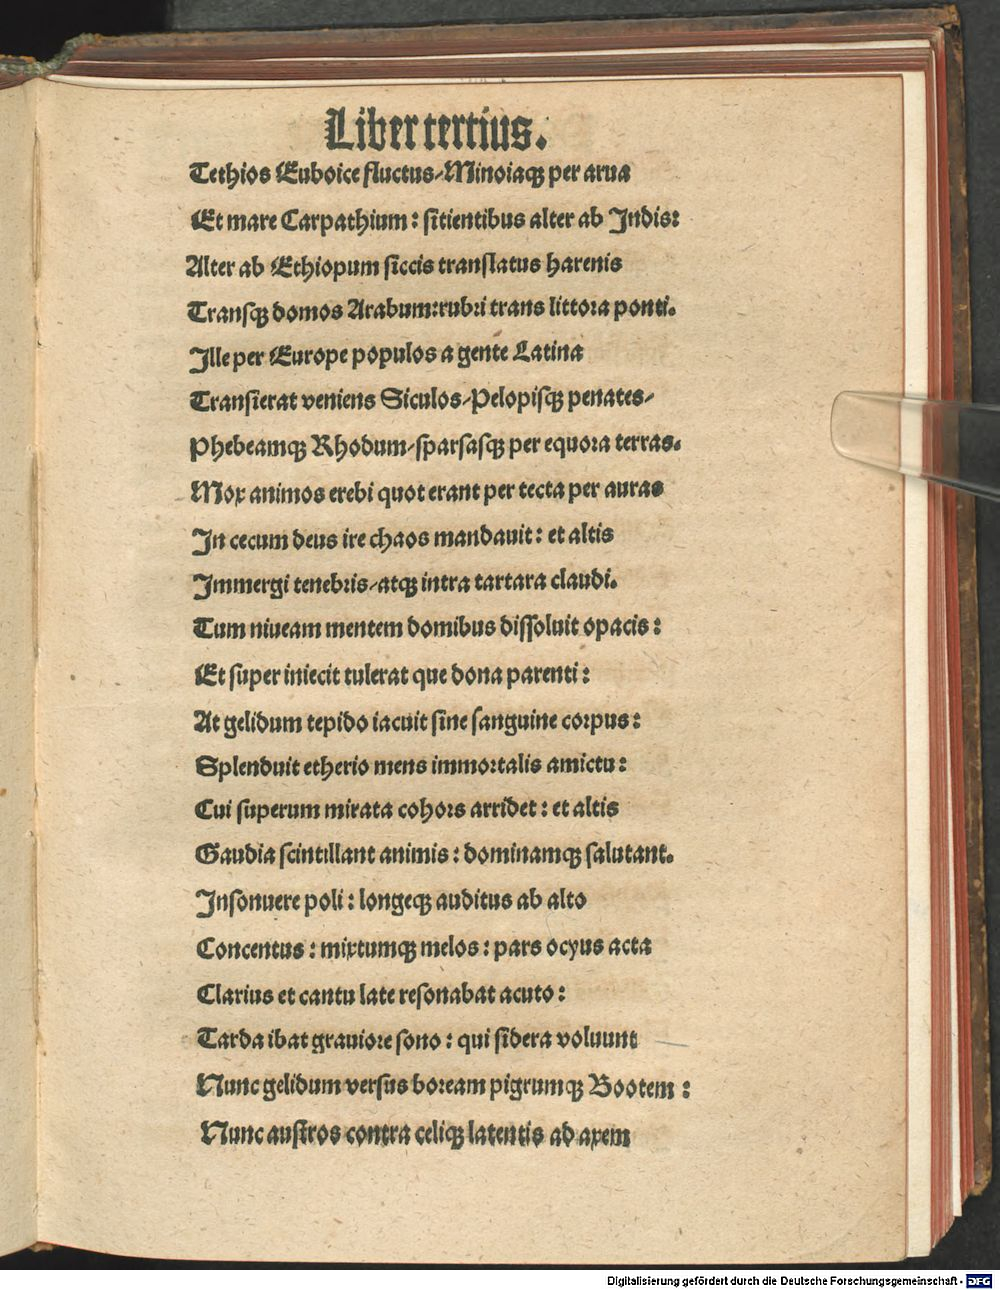 Liber tertius.
Tethios Euboice fluctus/Minoiaqꝫ per arua
Et mare Carpathium: sitientibus alter ab Indis:
Alter ab Ethiopum siccis translatus harenis
Transqꝫ domos Arabum:rubri trans littora ponti.
Ille per Europe populos a gente Latina
Transierat veniens Siculos/Pelopisqꝫ penates/
Phebeamqꝫ Rhodum/sparsasqꝫ per equora terras.
Mox animos erebi quot erant per tecta per auras
In cecum deus ire chaos mandauit: et altis
Immergi tenebris/atqꝫ intra tartara claudi.
Tum niueam mentem domibus dissoluit opacis:
Et super iniecit tulerat que dona parenti:
At gelidum tepido iacuit sine sanguine corpus:
Splenduit etherio mens immortalis amictu:
Cui superum mirata cohors arridet: et altis
Gaudia scintillant animis: dominamqꝫ salutant.
Insonuere poli: longeqꝫ auditus ab alto
Concentus: mixtumqꝫ melos: pars ocyus acta
Clarius et cantu late resonabat acuto:
Tarda ibat grauiore sono: qui sidera voluunt
Nunc gelidum versus boream pigrumqꝫ Bootem:
Nunc austros contra celiqꝫ latentis ad axem
Digitalisierung gefördert durch die Deutsche Forschungsgemeinschaft - DFG